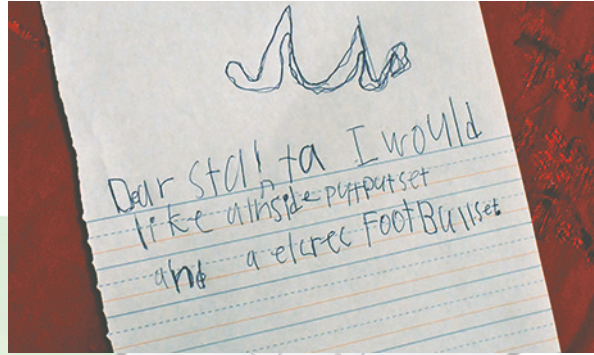 Dear stalta I would
like a inside puttputset
and a elcrec FootBallset